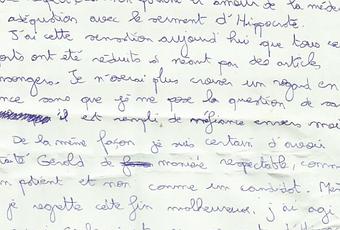 et amour de la méde
adéquation avec le serment d'Hippocrate.
J'ai cette sensation aujourd'hui que tous ce
orts ont été réduits à néant par des articles
songers. Je n'oserai plus croiser un regard en
nce sans que je me pose la question de sa
il est rempli de méfiance envers moi
De la même façon je suis certain d'avoir
raité Gérald de manière respectable, comm
n patient et non comme un candidat. Mê
je regrette cette fin malheureuse, j'ai agi